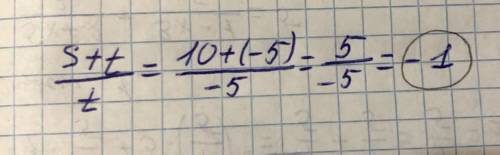 (s+t)/t = (10+(-5))/(-5) = 5/(-5) = -1